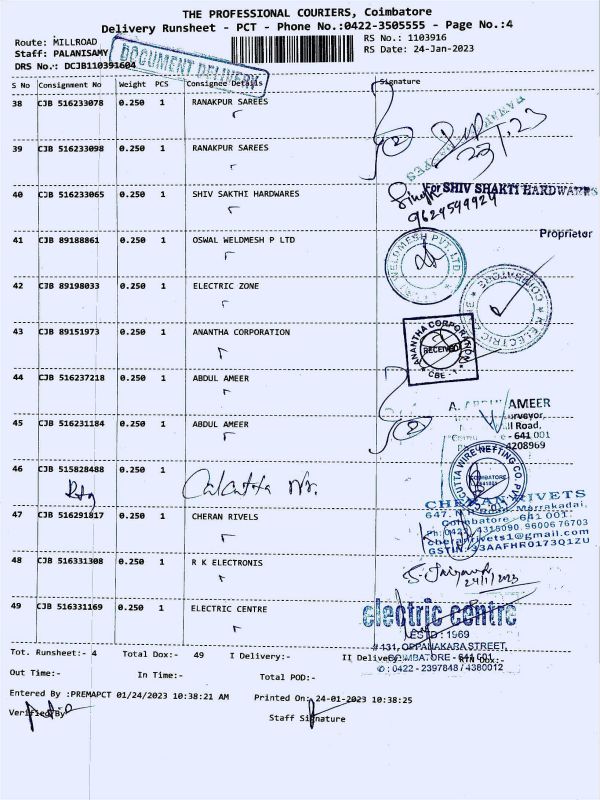 THE PROFESSIONAL COURIERS, Coimbatore
Delivery Runsheet - PCT - Phone No.:0422-3505555 - Page No.:4
Route: MILLROAD
RS No.: 1103916
Staff: PALANISAMY
RS Date: 24-Jan-2023
DRS No.: DCJB110391604
DOCUMENT DELIVERY
S No Consignment No Weight PCS Consignee Details Signature
38 CJB 516233078 0.250 1 RANAKPUR SAREES
39 CJB 516233098 0.250 1 RANAKPUR SAREES
40 CJB 516233065 0.250 1 SHIV SAKTHI HARDWARES
For SHIV SHAKTI HARDWARES
9624599924
Proprietor
41 CJB 89188861 0.250 1 OSWAL WELDMESH P LTD
WELDMESH PVT. LTD.
42 CJB 89198033 0.250 1 ELECTRIC ZONE
ELECTRIC ZONE * COIMBATORE
43 CJB 89151973 0.250 1 ANANTHA CORPORATION
ANANTHA CORPORATION
RECEIVED
* CBE - 1 *
44 CJB 516237218 0.250 1 ABDUL AMEER
45 CJB 516231184 0.250 1 ABDUL AMEER
A. AMEER
Surveyor,
Road,
- 641 001
4208969
46 CJB 515828488 0.250 1
Calcutta
CALCUTTA WIRE NETTING CO. PVT.
COIMBATORE
47 CJB 516291817 0.250 1 CHERAN RIVELS
CHERAN RIVETS
647, Marrakadai,
Coimbatore - 641 001.
Ph: 0422 - 4315090, 96006 76703
cheranrivets1@gmail.com
GSTIN:33AAFHR0173Q1ZU
48 CJB 516331308 0.250 1 R K ELECTRONIS
24/1/2023
49 CJB 516331169 0.250 1 ELECTRIC CENTRE
electric centre
ESTD : 1969
# 431, OPPANAKARA STREET,
COIMBATORE - 641 001
✆ : 0422 - 2397848 / 4380012
Tot. Runsheet:- 4 Total Dox:- 49 I Delivery:- II Delivery:- RTN Dox:-
Out Time:- In Time:- Total POD:-
Entered By :PREMAPCT 01/24/2023 10:38:21 AM Printed On: 24-01-2023 10:38:25
Verified By Staff Signature